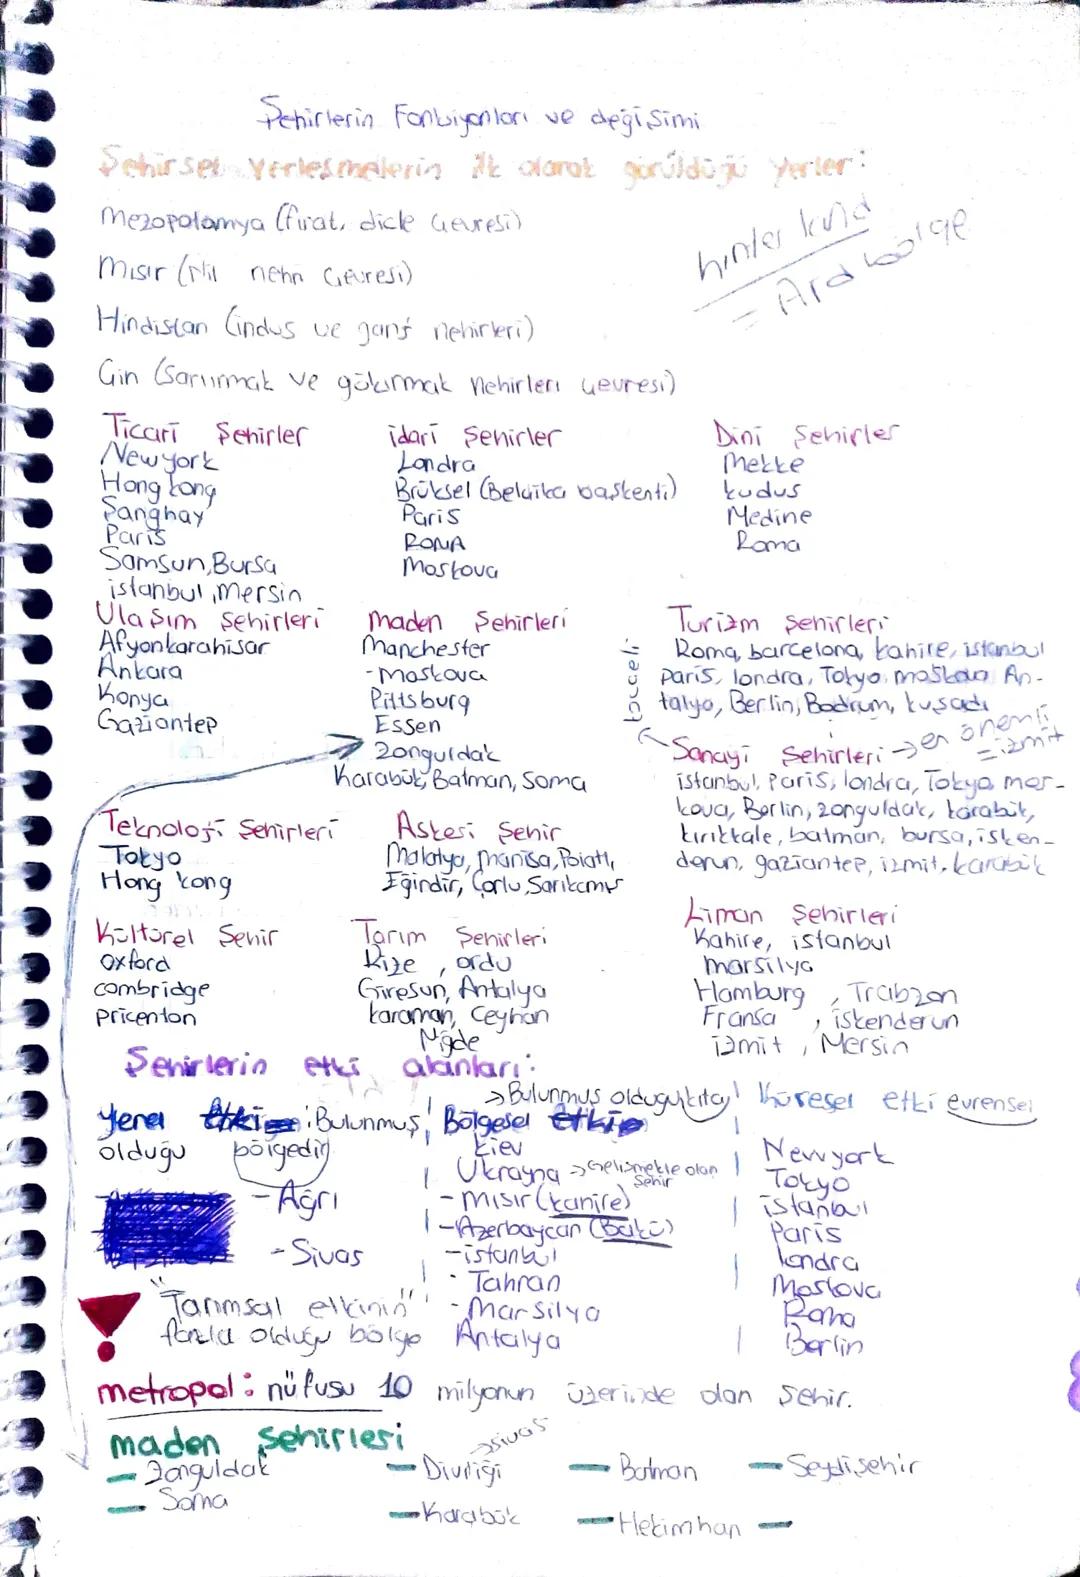 Şehirlerin Fonksiyonları ve değişimi
Şehirsel Yerleşmelerin ilk olarak görüldüğü yerler:
Mezopotamya (fırat, dicle Çevresi)
Mısır (Nil nehri Çevresi)
Hindistan (indus ve ganj nehirleri)
Çin (Sarıırmak ve gökırmak nehirleri çevresi)
hinterland
= Ard bölge
Ticari Şehirler
New york
Hong kong
Şanghay
Paris
Samsun, Bursa
istanbul, Mersin
idari Şehirler
Londra
Brüksel (Belçika başkenti)
Paris
ROMA
Moskova
Dini Şehirler
Mekke
kudüs
Medine
Roma
Ulaşım Şehirleri
Afyonkarahisar
Ankara
Konya
Gaziantep
maden Şehirleri
Manchester
-moskova
Pittsburg
Essen
Zonguldak
Karabük, Batman, Soma
Turizm Şehirleri
Roma, barcelona, kahire, istanbul
paris, londra, Tokyo, moskova An-
talya, Berlin, Bodrum, kuşadı
kocaeli
Sanayi Şehirleri → en önemli
= izmit
istanbul, Paris, londra, Tokyo, mos-
kova, Berlin, zonguldak, karabük,
kırıkkale, batman, bursa, isken-
derun, gaziantep, izmit, karabük
Teknoloji Şehirleri
Tokyo
Hong kong
Askeri Şehir
Malatya, manisa, Polatlı,
Eğirdir, Çorlu, Sarıkamış
Kültürel Şehir
Oxford
combridge
pricenton
Tarım Şehirleri
Rize, ordu
Giresun, Antalya
karaman, Ceyhan
Niğde
Liman Şehirleri
Kahire, istanbul
marsilya
Hamburg, Trabzon
Fransa, iskenderun
izmit, Mersin
Şehirlerin etki alanları:
yerel etki : Bulunmuş
olduğu bölgedir
- Ağrı
- Sivas
"Tarımsal etkinin"
fazla olduğu bölge
→ Bulunmuş olduğu kıta
Bölgesel etki
kiev
Ukrayna → Gelişmekte olan
şehir
- mısır (kahire)
- Azerbaycan (Bakü)
- istanbul
- Tahran
- Marsilya
Antalya
küresel etki evrensel
New york
Tokyo
istanbul
Paris
londra
Moskova
Roma
Berlin
metropol: nüfusu 10 milyonun üzerinde olan şehir.
maden şehirleri
- Zonguldak
- Soma
- Divriği → sivas
- Karabük
- Batman
- Hekimhan
- Seydişehir
-